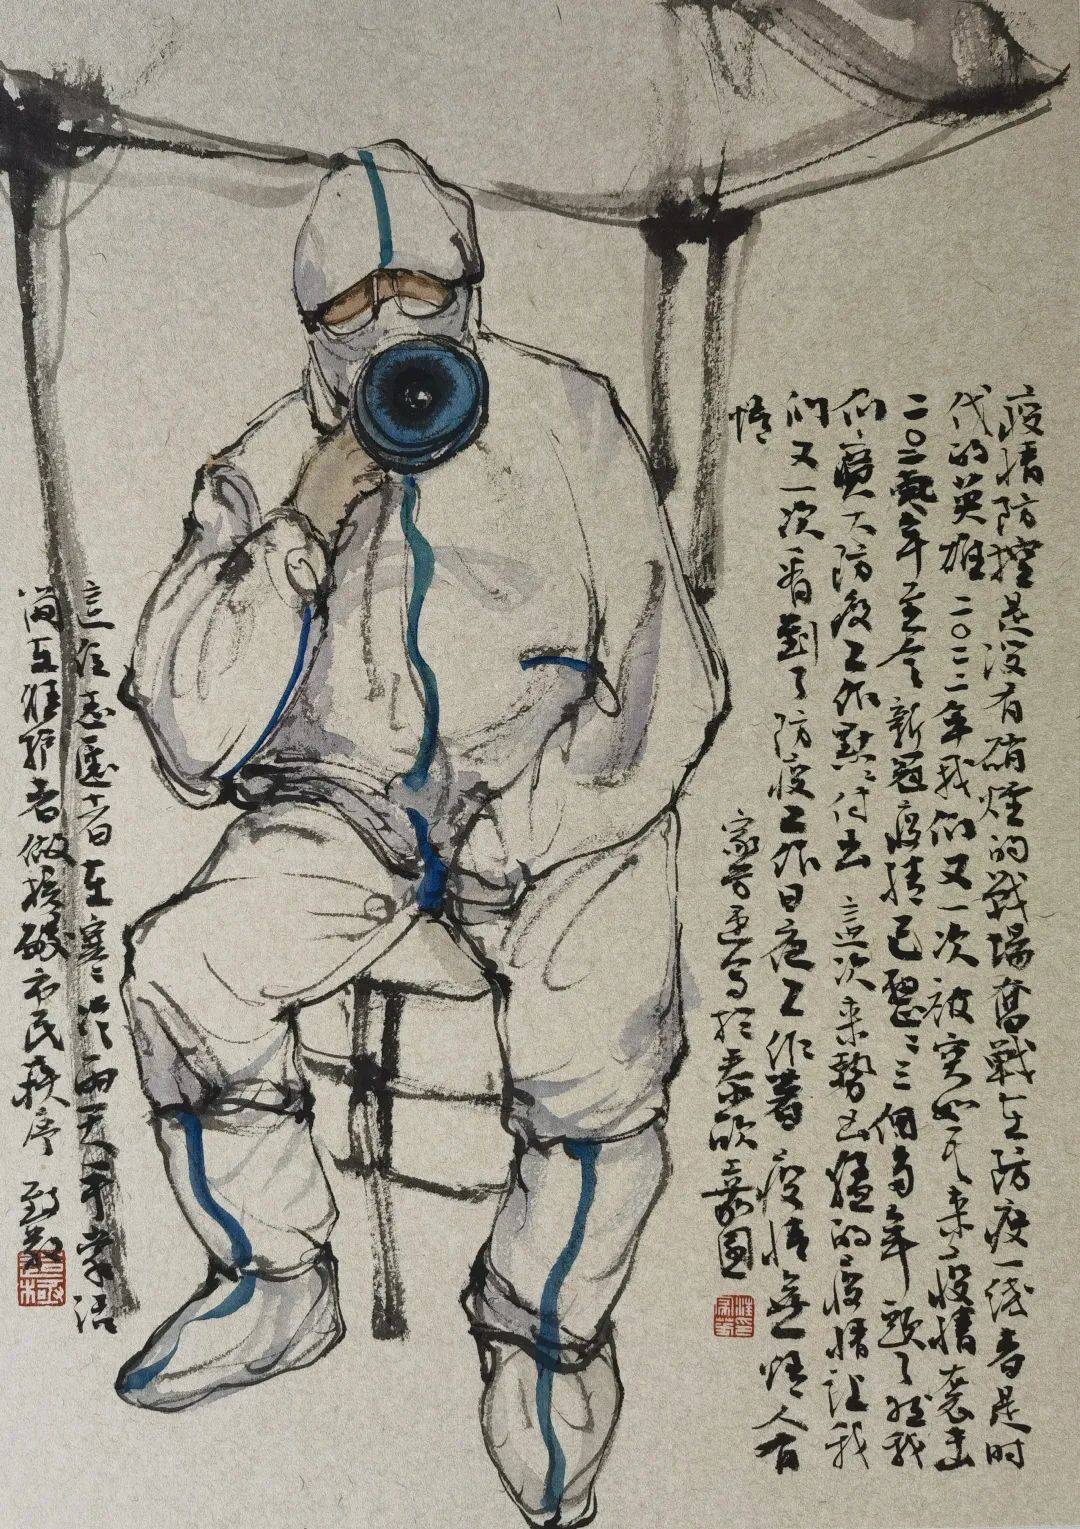 疫情防控是没有硝烟的战场奋战在防疫一线者是时
代的英雄二〇二二年我们又一次被突如其来了疫情袭击
二〇二零年至今新冠疫情已整三个多年头了然我
们广大防疫工作默默付出这次来势凶猛的疫情让我
们又一次看到了防疫工作日夜工作着疫情无情人有
情
家芳速写于泰欣嘉园
这位志愿者在寒冷雨天干掌活
简互维护者做核酸市民秩序